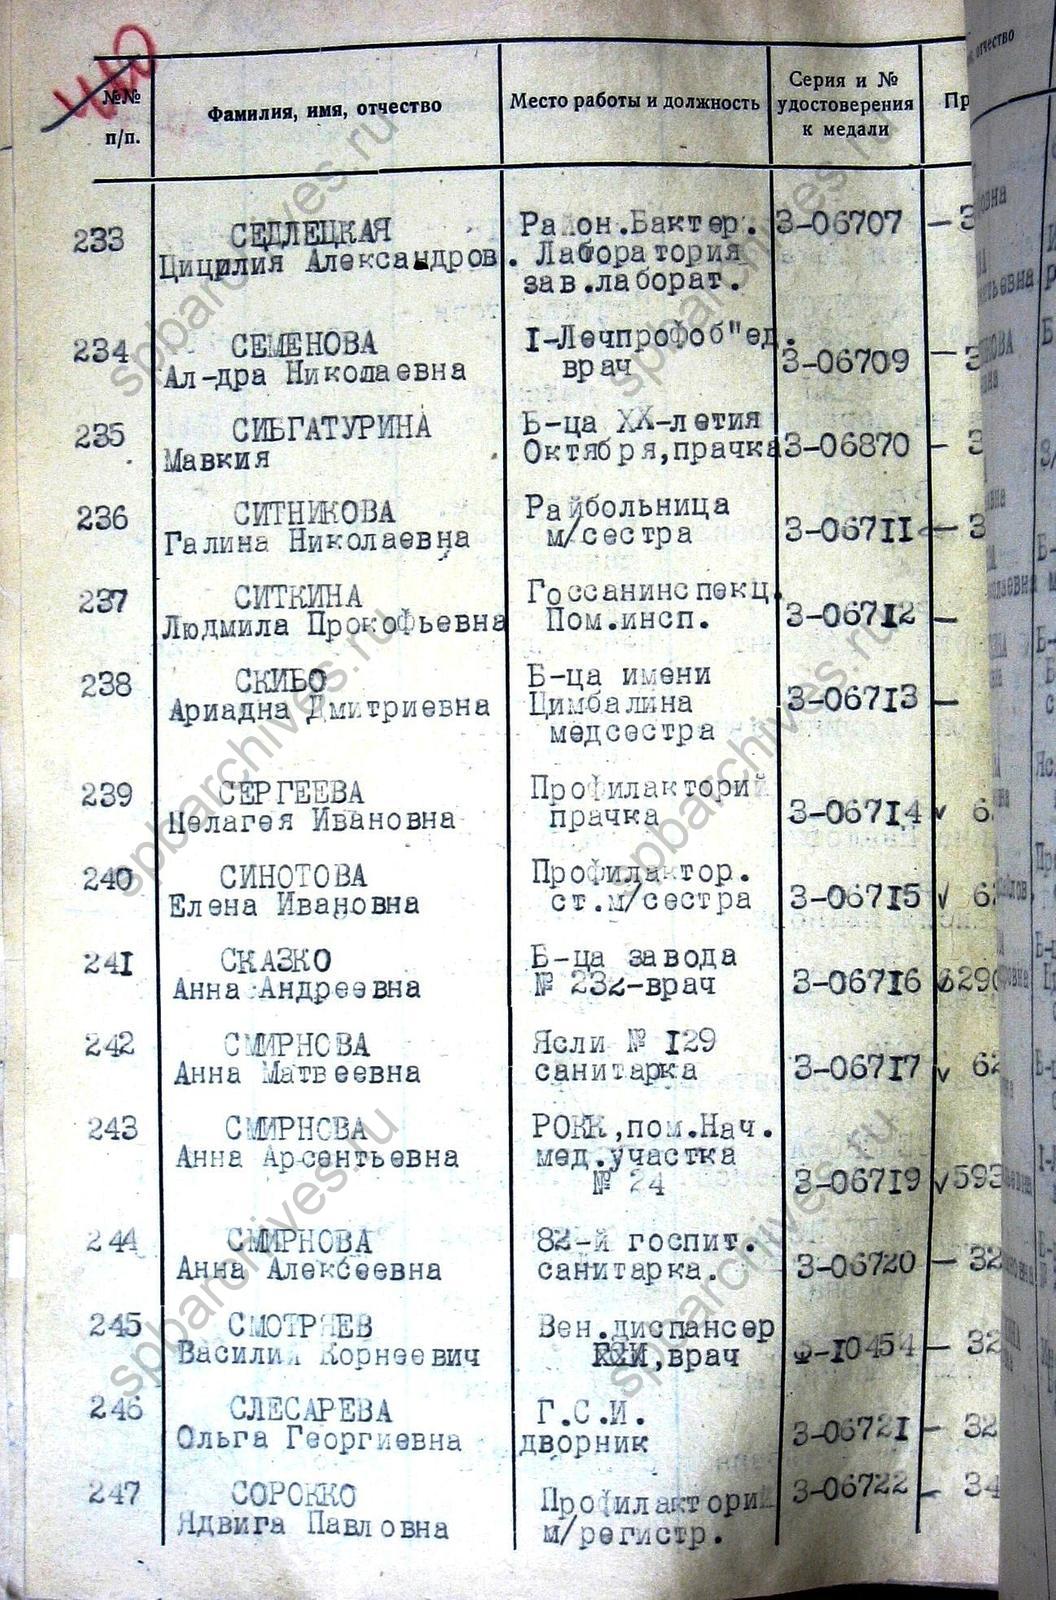 №№
п/п.
Фамилия, имя, отчество
Место работы и должность
Серия и №
удостоверения
к медали
Пр
233 СЕДЛЕЦКАЯ Район.Бактер. З-06707 – З
Цицилия Александров. Лаборатория
зав.лаборат.
234 СЕМЕНОВА I-Лечпрофоб"ед. З-06709 – З
Ал-дра Николаевна врач
235 СИБГАТУРИНА Б-ца ХХ-летия З-06870 – З
Мавкия Октября,прачка
236 СИТНИКОВА Райбольница З-06711 – З
Галина Николаевна м/сестра
237 СИТКИНА Госсанинспекц. З-06712 –
Людмила Прокофьевна Пом.инсп.
238 СКИБО Б-ца имени З-06713 –
Ариадна Дмитриевна Цимбалина
медсестра
239 СЕРГЕЕВА Профилакторий З-06714 v 6
Пелагея Ивановна прачка
240 СИНОТОВА Профилактор. З-06715 v 62
Елена Ивановна ст.м/сестра
241 СКАЗКО Б-ца завода З-06716 v 6290
Анна Андреевна № 232-врач
242 СМИРНОВА Ясли № 129 З-06717 v 62
Анна Матвеевна санитарка
243 СМИРНОВА РОКК,пом.Нач. З-06719 v 593
Анна Арсентьевна мед.участка
№ 24
244 СМИРНОВА 82-й госпит. З-06720 – 32
Анна Алексеевна санитарка.
245 СМОТРЯЕВ Вен.диспансер Ф-10454 – 32
Василий Корнеевич врач
246 СЛЕСАРЕВА Г.С.И. З-06721 – 32
Ольга Георгиевна дворник
247 СОРОККО Профилакторий З-06722 – 34
Ядвига Павловна м/регистр.
spbarchives.ru
spbarchives.ru
spbarchives.ru
spbarchives.ru
spbarchives.ru
spbarchives.ru